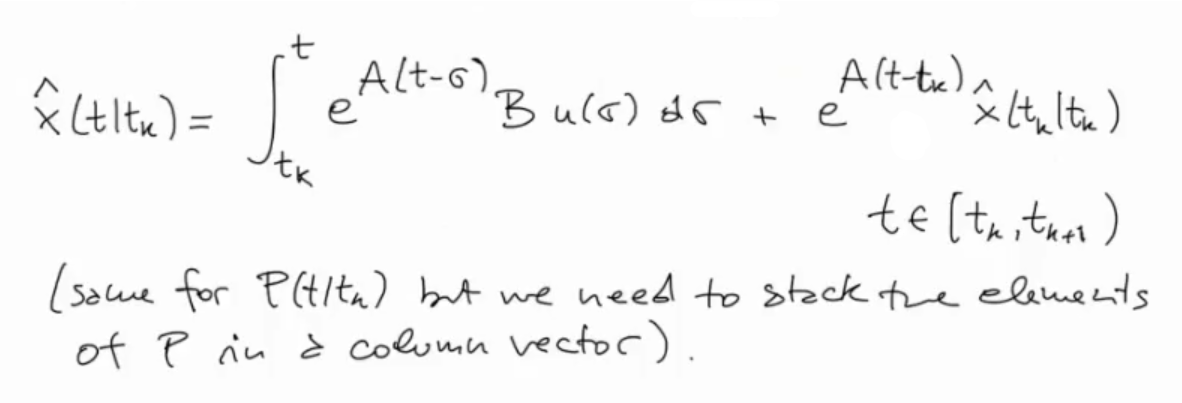 x̂(t|tₖ) = ∫_{tₖ}^{t} e^{A(t-σ)} B u(σ) dσ + e^{A(t-tₖ)} x̂(tₖ|tₖ)
t ∈ [tₖ, tₖ₊₁)
(same for P(t|tₖ) but we need to stack the elements
of P in a column vector).